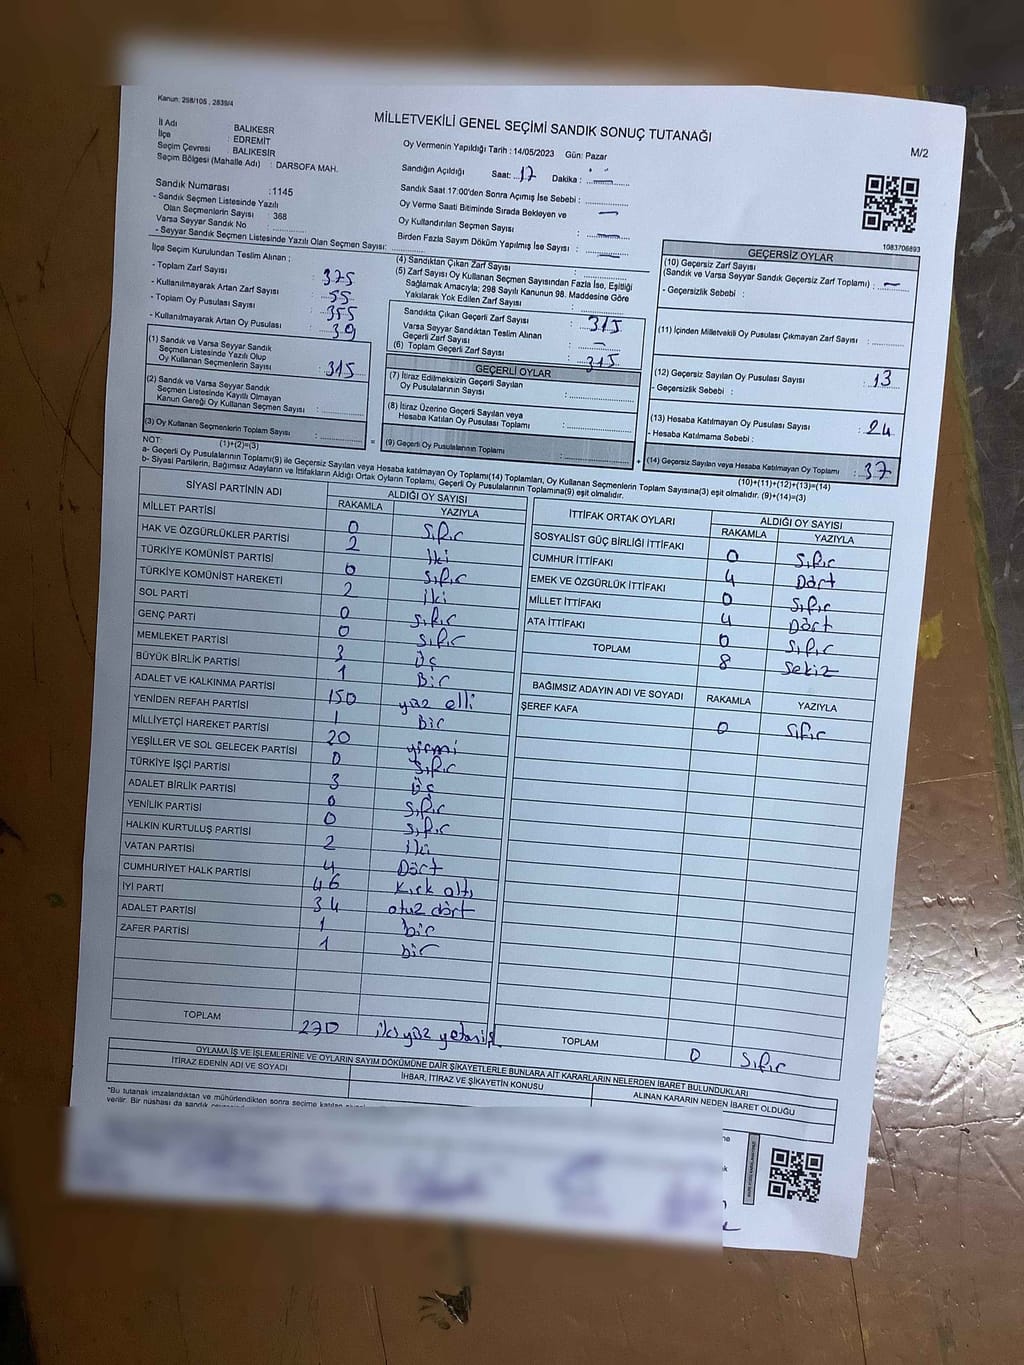 Kanun: 298/105 , 2839/4
MİLLETVEKİLİ GENEL SEÇİMİ SANDIK SONUÇ TUTANAĞI
M/2
İl Adı : BALIKESR
İlçe : EDREMİT
Seçim Çevresi : BALIKESİR
Seçim Bölgesi (Mahalle Adı) : DARSOFA MAH.
Oy Vermenin Yapıldığı Tarih : 14/05/2023 Gün: Pazar
Sandığın Açıldığı Saat: 17 Dakika : —
Sandık Saat 17:00'den Sonra Açımış İse Sebebi :
Oy Verme Saati Bitiminde Sırada Bekleyen ve
Oy Kullandırılan Seçmen Sayısı : —
Birden Fazla Sayım Döküm Yapılmış İse Sayısı : —
Sandık Numarası :1145
- Sandık Seçmen Listesinde Yazılı
Olan Seçmenlerin Sayısı : 368
Varsa Seyyar Sandık No :
- Seyyar Sandık Seçmen Listesinde Yazılı Olan Seçmen Sayısı:
1083706893
İlçe Seçim Kurulundan Teslim Alınan ;
- Toplam Zarf Sayısı : 375
- Kullanılmayarak Artan Zarf Sayısı : 55
- Toplam Oy Pusulası Sayısı : 355
- Kullanılmayarak Artan Oy Pusulası : 39
(1) Sandık ve Varsa Seyyar Sandık
Seçmen Listesinde Yazılı Olup
Oy Kullanan Seçmenlerin Sayısı : 315
(2) Sandık ve Varsa Seyyar Sandık
Seçmen Listesinde Kayıtlı Olmayan
Kanun Gereği Oy Kullanan Seçmen Sayısı :
(3) Oy Kullanan Seçmenlerin Toplam Sayısı :
(1)+(2)=(3)
(4) Sandıktan Çıkan Zarf Sayısı :
(5) Zarf Sayısı Oy Kullanan Seçmen Sayısından Fazla İse, Eşitliği
Sağlamak Amacıyla; 298 Sayılı Kanunun 98. Maddesine Göre
Yakılarak Yok Edilen Zarf Sayısı :
Sandıkta Çıkan Geçerli Zarf Sayısı : 315
Varsa Seyyar Sandıktan Teslim Alınan
Geçerli Zarf Sayısı : —
(6) Toplam Geçerli Zarf Sayısı : 315
GEÇERLİ OYLAR
(7) İtiraz Edilmeksizin Geçerli Sayılan
Oy Pusulalarının Sayısı :
(8) İtiraz Üzerine Geçerli Sayılan veya
Hesaba Katılan Oy Pusulası Toplamı :
(9) Geçerli Oy Pusulalarının Toplamı :
GEÇERSİZ OYLAR
(10) Geçersiz Zarf Sayısı
(Sandık ve Varsa Seyyar Sandık Geçersiz Zarf Toplamı) : —
- Geçersizlik Sebebi :
(11) İçinden Milletvekili Oy Pusulası Çıkmayan Zarf Sayısı :
(12) Geçersiz Sayılan Oy Pusulası Sayısı : 13
- Geçersizlik Sebebi :
(13) Hesaba Katılmayan Oy Pusulası Sayısı : 24
- Hesaba Katılmama Sebebi :
(14) Geçersiz Sayılan veya Hesaba Katılmayan Oy Toplamı : 37
(10)+(11)+(12)+(13)=(14)
NOT:
a- Geçerli Oy Pusulalarının Toplamı(9) ile Geçersiz Sayılan veya Hesaba katılmayan Oy Toplamı(14) Toplamları, Oy Kullanan Seçmenlerin Toplam Sayısına(3) eşit olmalıdır. (9)+(14)=(3)
b- Siyasi Partilerin, Bağımsız Adayların ve İttifakların Aldığı Ortak Oyların Toplamı, Geçerli Oy Pusulalarının Toplamına(9) eşit olmalıdır.
SİYASİ PARTİNİN ADI ALDIĞI OY SAYISI
RAKAMLA YAZIYLA
MİLLET PARTİSİ 0 Sıfır
HAK VE ÖZGÜRLÜKLER PARTİSİ 2 İki
TÜRKİYE KOMÜNİST PARTİSİ 0 Sıfır
TÜRKİYE KOMÜNİST HAREKETİ 2 iki
SOL PARTİ 0 Sıfır
GENÇ PARTİ 0 Sıfır
MEMLEKET PARTİSİ 3 Üç
BÜYÜK BİRLİK PARTİSİ 1 Bir
ADALET VE KALKINMA PARTİSİ 150 yüz elli
YENİDEN REFAH PARTİSİ 1 bir
MİLLİYETÇİ HAREKET PARTİSİ 20 yirmi
YEŞİLLER VE SOL GELECEK PARTİSİ 0 Sıfır
TÜRKİYE İŞÇİ PARTİSİ 3 Üç
ADALET BİRLİK PARTİSİ 0 Sıfır
YENİLİK PARTİSİ 0 Sıfır
HALKIN KURTULUŞ PARTİSİ 2 İki
VATAN PARTİSİ 4 Dört
CUMHURİYET HALK PARTİSİ 46 Kırk altı
İYİ PARTİ 34 otuz dört
ADALET PARTİSİ 1 bir
ZAFER PARTİSİ 1 bir
TOPLAM 270 iki yüz yetmiş
İTTİFAK ORTAK OYLARI ALDIĞI OY SAYISI
RAKAMLA YAZIYLA
SOSYALİST GÜÇ BİRLİĞİ İTTİFAKI 0 Sıfır
CUMHUR İTTİFAKI 4 Dört
EMEK VE ÖZGÜRLÜK İTTİFAKI 0 Sıfır
MİLLET İTTİFAKI 4 Dört
ATA İTTİFAKI 0 Sıfır
TOPLAM 8 Sekiz
BAĞIMSIZ ADAYIN ADI VE SOYADI RAKAMLA YAZIYLA
ŞEREF KAFA 0 Sıfır
TOPLAM 0 Sıfır
OYLAMA İŞ VE İŞLEMLERİNE VE OYLARIN SAYIM DÖKÜMÜNE DAİR ŞİKAYETLERLE BUNLARA AİT KARARLARIN NELERDEN İBARET BULUNDUKLARI
İTİRAZ EDENİN ADI VE SOYADI İHBAR, İTİRAZ VE ŞİKAYETİN KONUSU ALINAN KARARIN NEDEN İBARET OLDUĞU
*Bu tutanak imzalandıktan ve mühürlendikten sonra seçime katılan
verilir. Bir nüshası da sandık